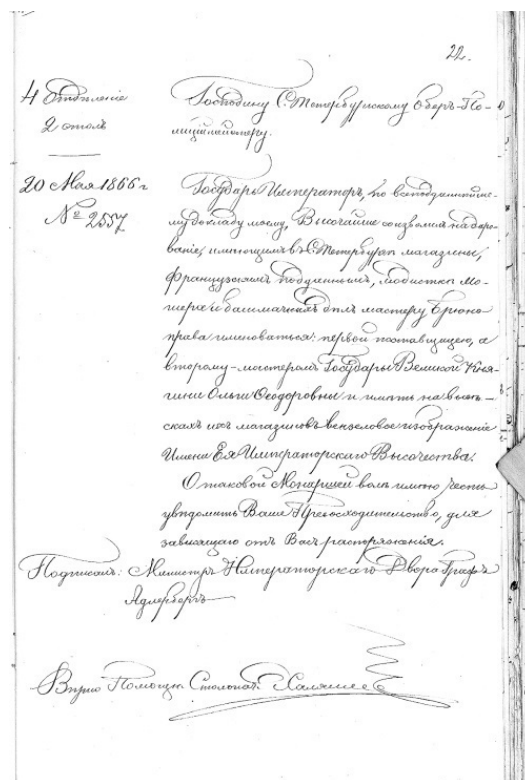 22.
4 Отдѣленіе
2 столъ
Господину С. Петербургскому Оберъ-По-
лиціймейстеру.
20 Мая 1866 г
№ 2557
Государь Императоръ, по всеподданнѣйше-
му докладу моему, Высочайше соизволилъ на даро-
ваніе, имѣющимъ въ С. Петербургѣ магазины,
Французскимъ подданнымъ, модисткѣ Мо-
и башмачныхъ дѣлъ мастеру Брюно
права именоваться: первой поставщицею, а
второму - мастеромъ Государыни Великой Кня-
гини Ольги Ѳеодоровны и имѣть на вывѣ-
скахъ ихъ магазиновъ вензеловое изображеніе
Имени Ея Императорскаго Высочества.
О таковой Монаршей волѣ имѣю честь
увѣдомить Ваше Превосходительство, для
зависящаго отъ Васъ распоряженія.
Подписалъ: Министръ Императорскаго Двора Графъ
Адлербергъ
Вѣрно Помощн. Столонач.